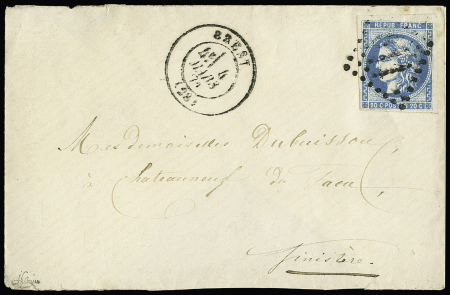 BREST
4
MARS
71
(28)
REPUB. FRANC.
20 C. POSTES 20 C.
Mesdemoiselles Dubuisson
à Chateauneuf du Faou
Finistère.